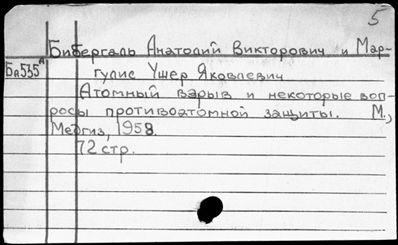 5
Бибергаль Анатолий Викторович и Мар-
Ба535А гулис Ушер Яковлевич
Атомный взрыв и некоторые воп-
росы противоатомной защиты. М.,
Медгиз, 1958.
72 стр.